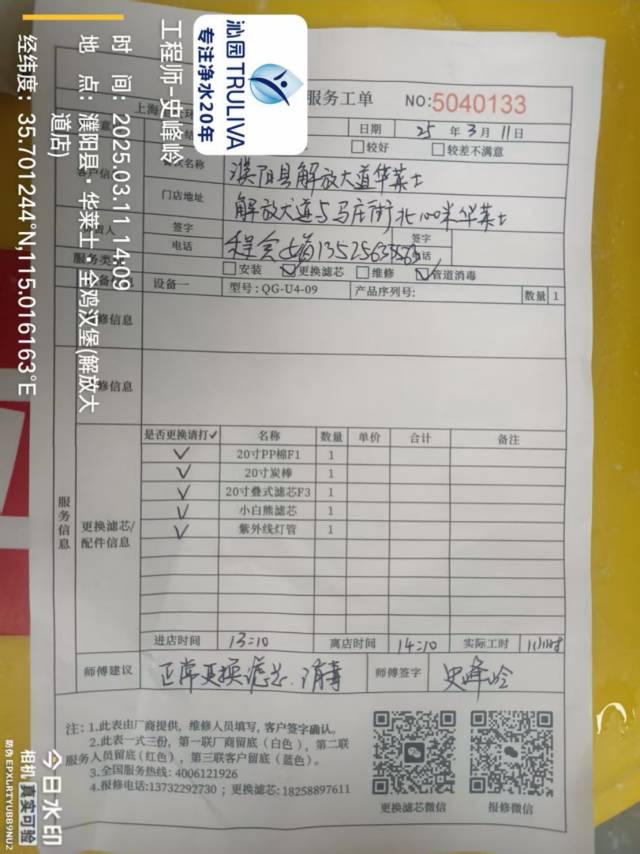 沁园TRULIVA
专注净水20年
工程师-史峰岭
时 间：2025.03.11 14:09
地 点：濮阳县·华莱士·全鸡汉堡(解放大
道店)
经纬度：35.701244°N,115.016163°E
服务工单 NO:5040133
上海
日期 25 年 3 月 11 日
较好 较差不满意
名称 濮阳县解放大道华莱士
门店地址 解放大道与马庄街北100米华莱士
签字 签字
电话
服务类 安装 更换滤芯 维修 管道消毒
设备一 型号：QG-U4-09 产品序列号： 数量 1
修信息
修信息
服务信息
更换滤芯/
配件信息
是否更换请打✓ 名称 数量 单价 合计 备注
✓ 20寸PP棉F1 1
✓ 20寸炭棒 1
✓ 20寸叠式滤芯F3 1
✓ 小白熊滤芯 1
✓ 紫外线灯管 1
进店时间 13:10 离店时间 14:10 实际工时 1小时
师傅建议 正常更换滤芯.消毒 师傅签字 史峰岭
注：1.此表由厂商提供，维修人员填写，客户签字确认。
2.此表一式三份，第一联厂商留底（白色），第二联
服务人员留底（红色），第三联客户留底（蓝色）。
3.全国服务热线：4006121926
4.报修电话:13732292730；更换滤芯:18258897611
更换滤芯微信 报修微信
今日水印
相机 真实可验
防伪 EPXLRTYUBB9NU2